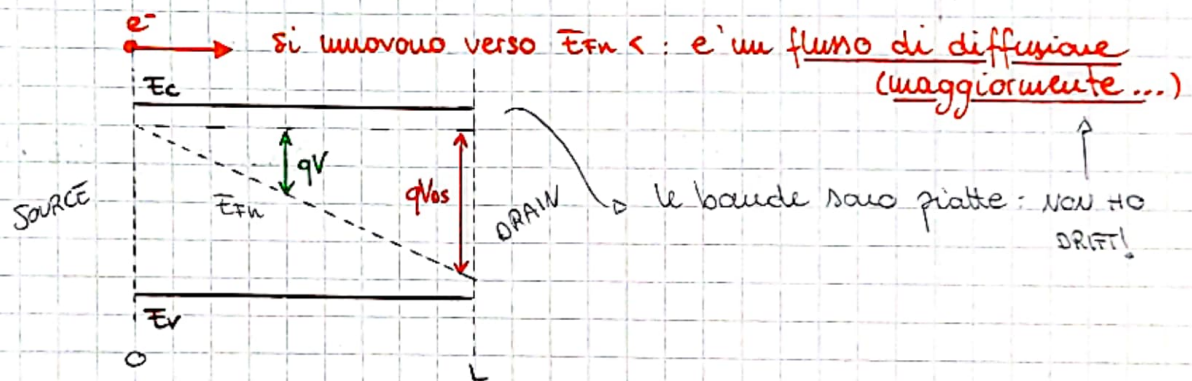 e⁻
si muovono verso EFn < : e' un flusso di diffusione
(maggiormente...)
Ec
qV
qVDS
EFn
SOURCE
DRAIN
le bande sono piatte: NON HO
DRIFT!
Ev
O
L